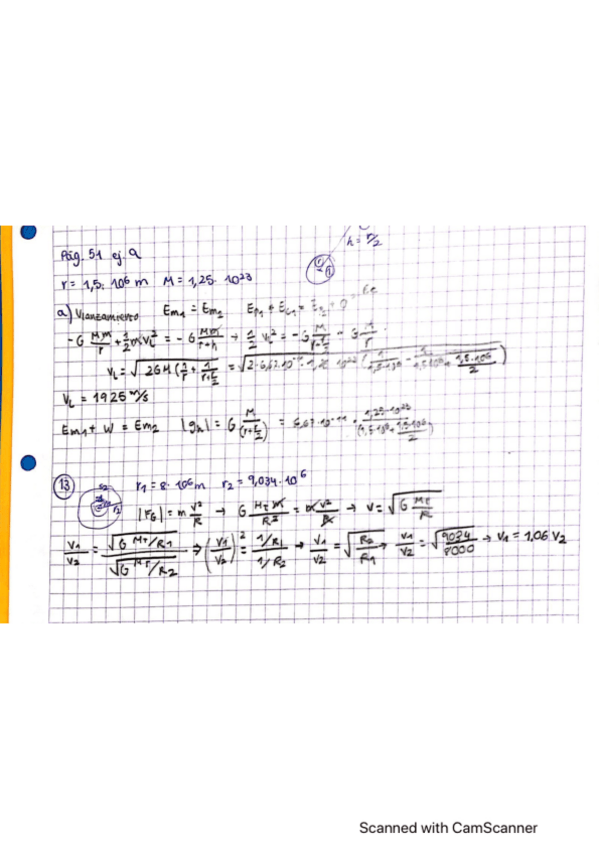 h = r/2
Pág. 51 ej. 9
r = 1,5 · 10⁶ m M = 1,25 · 10²³
a) Vlanzamiento Em₁ = Em₂ Ep₁ + Ec₁ =
-G Mm/r + 1/2 m v_L² = -G Mm/(r+h) → 1/2 v_L² = -G M/(r+r/2)
V_L = √(2GM (1/r + 1/(r+r/2)) =
V_L = 1925 m/s
Em₁ + W = Em₂ |g_h| = G M/(r+r/2) = 6,67·10⁻¹¹ · 1,25·10²³/(1,5·10⁶ + 1,5·10⁶/2)
13 r₁ = 8 · 10⁶ m r₂ = 9,034 · 10⁶
|F_G| = m v²/R → G M_T m/R² = m v²/R → v = √(G M_T/R)
v₁/v₂ = √(G M_T/R₁)/√(G M_T/R₂) ⇒ (v₁/v₂)² = (1/R₁)/(1/R₂) → v₁/v₂ = √(R₂/R₁) → v₁/v₂ = √(9034/8000) → v₁ = 1,06 v₂
Scanned with CamScanner